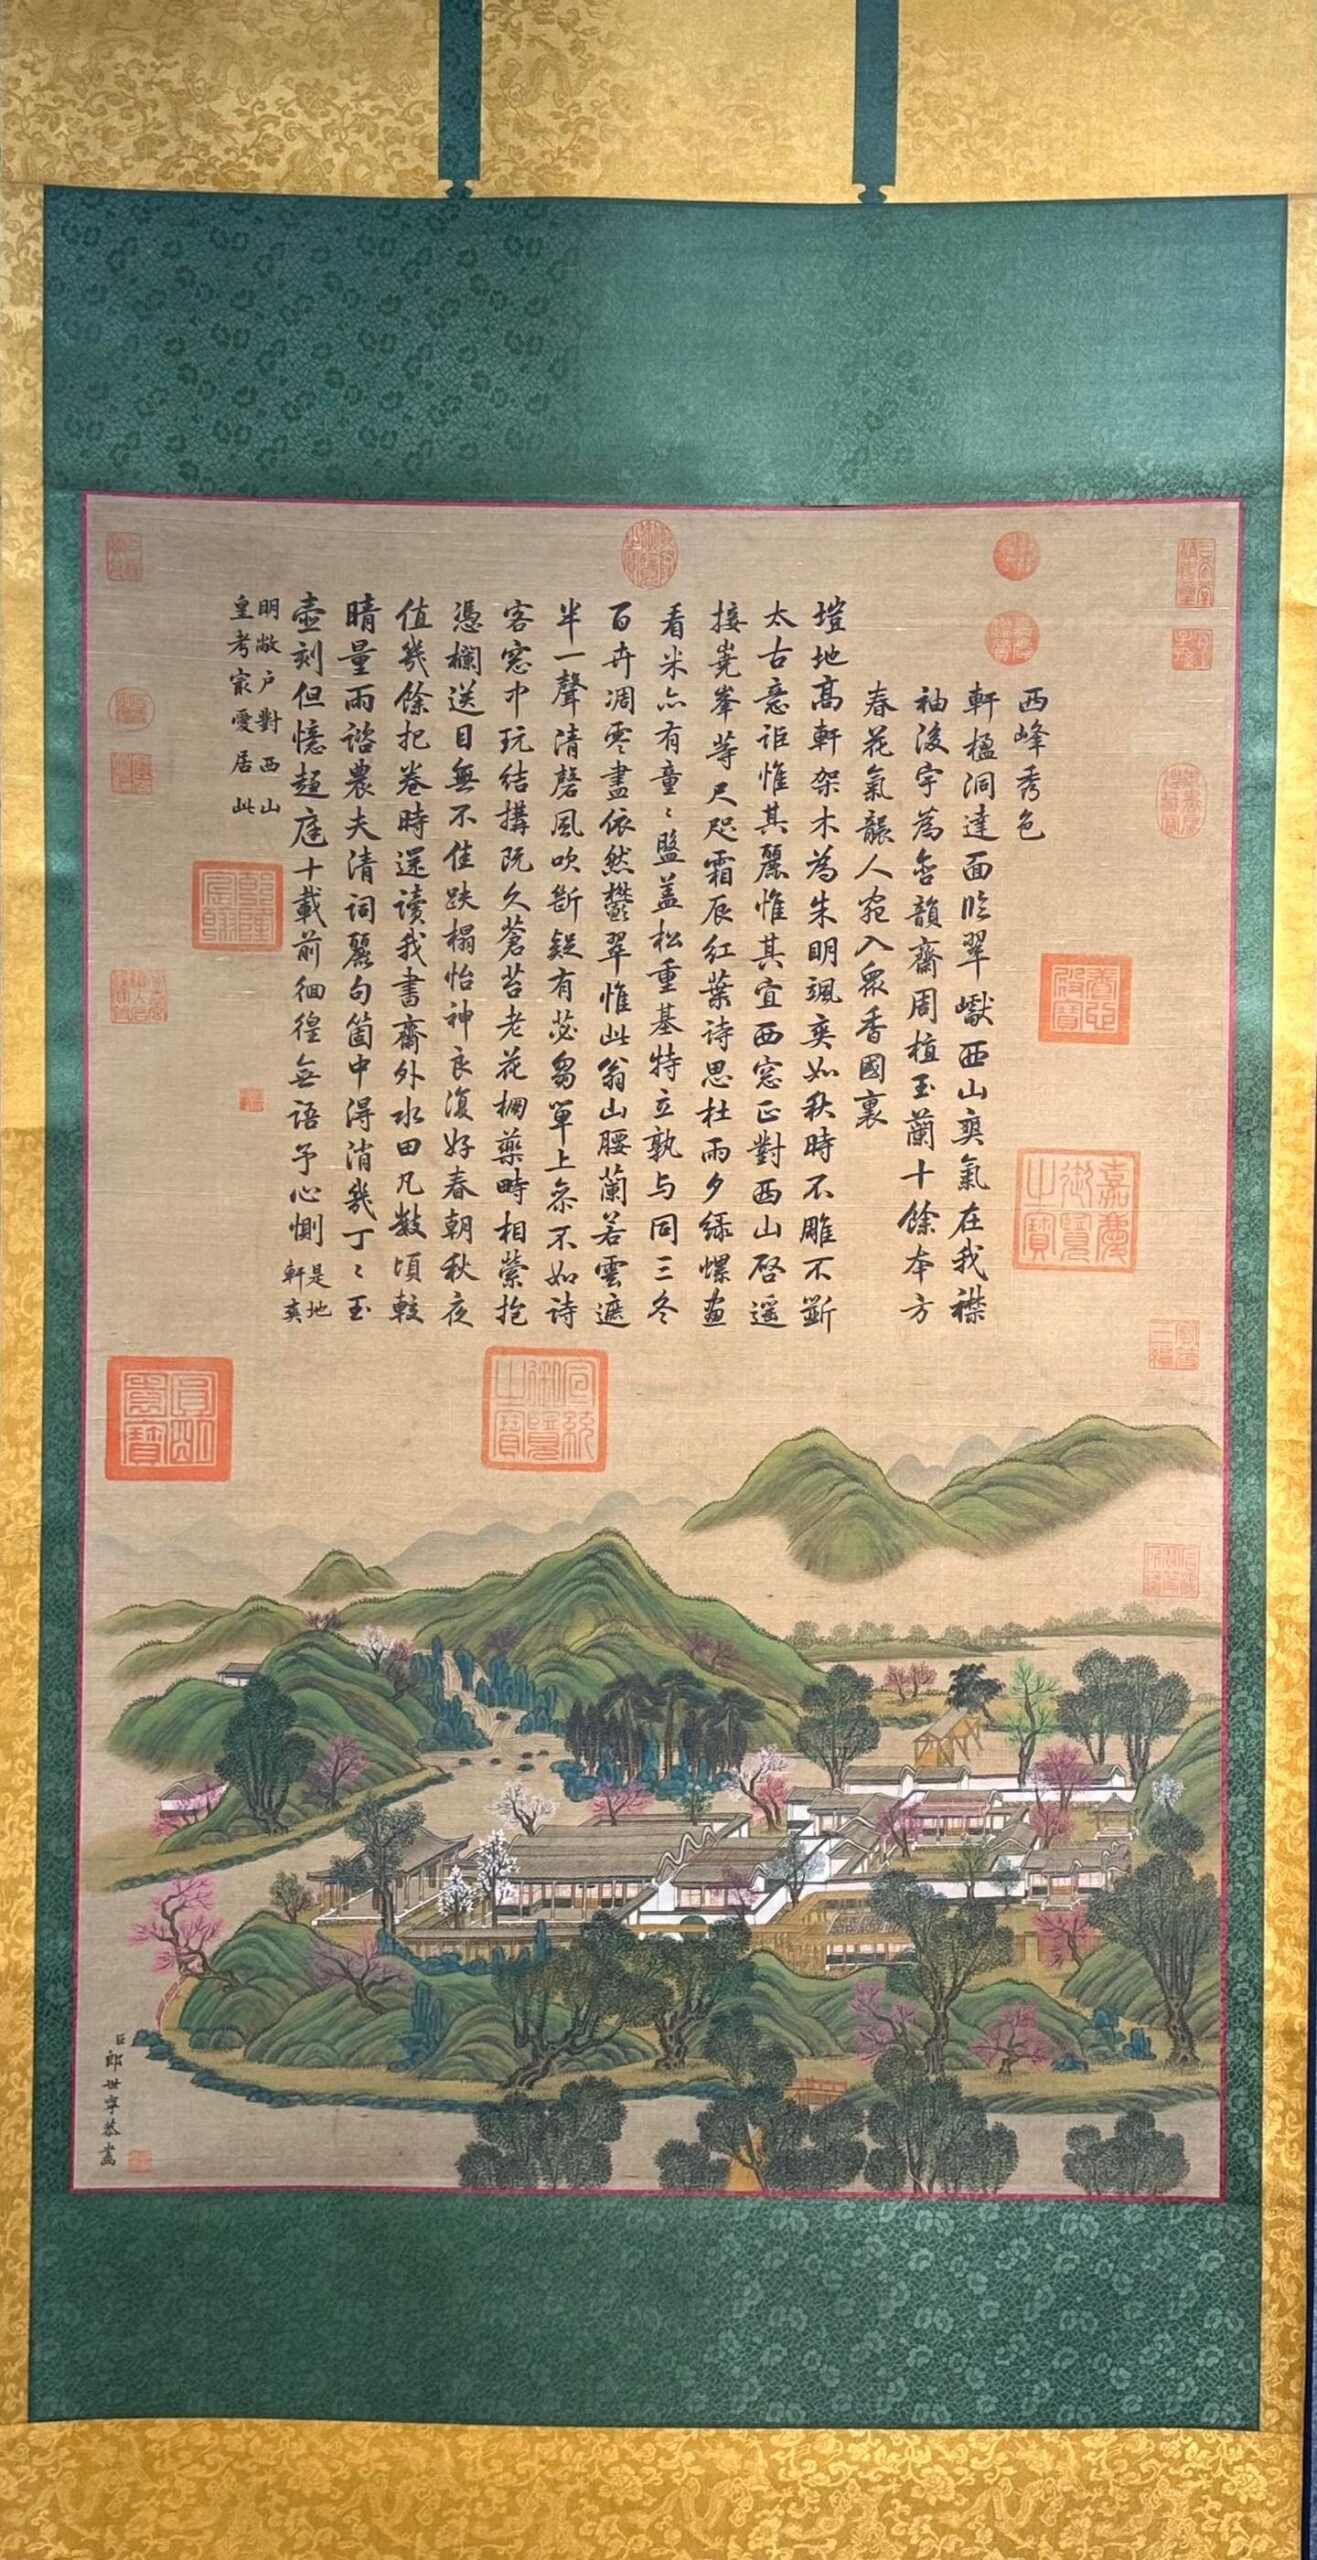 西峰秀色
軒楹洞達面臨翠巘西山爽氣在我襟
袖後宇為含韻齋周植玉蘭十餘本方
春花氣襲人宛入眾香國裏
塏地高軒架木為朱明颯爽如秋時不雕不斲
太古意詎惟其麗惟其宜西窓正對西山啟遥
接嶤峯等尺咫霜辰紅葉詩思杜雨夕綠螺畫
看米亦有童〻盤蓋松重基特立孰与同三冬
百卉凋零盡依然鬱翠惟此翁山腰蘭若雲遮
半一聲清磬風吹斷疑有苾芻單上參不如詩
客窓中玩結搆既久蒼苔老花欄藥畤相縈抱
憑欄送目無不佳趺榻怡神良復好春朝秋夜
值幾餘把卷時還讀我書齋外水田凡數頃較
晴量雨諮農夫清詞麗句箇中得消幾丁〻玉
壺刻但憶趨庭十載前徊徨無語予心惻
是地
軒爽
明敞户對西山
皇考最愛居此
乾隆宸翰
養心殿寶
嘉慶御覽之寶
宣統御覽之寶
圓明園寶
臣郎世寧恭畫